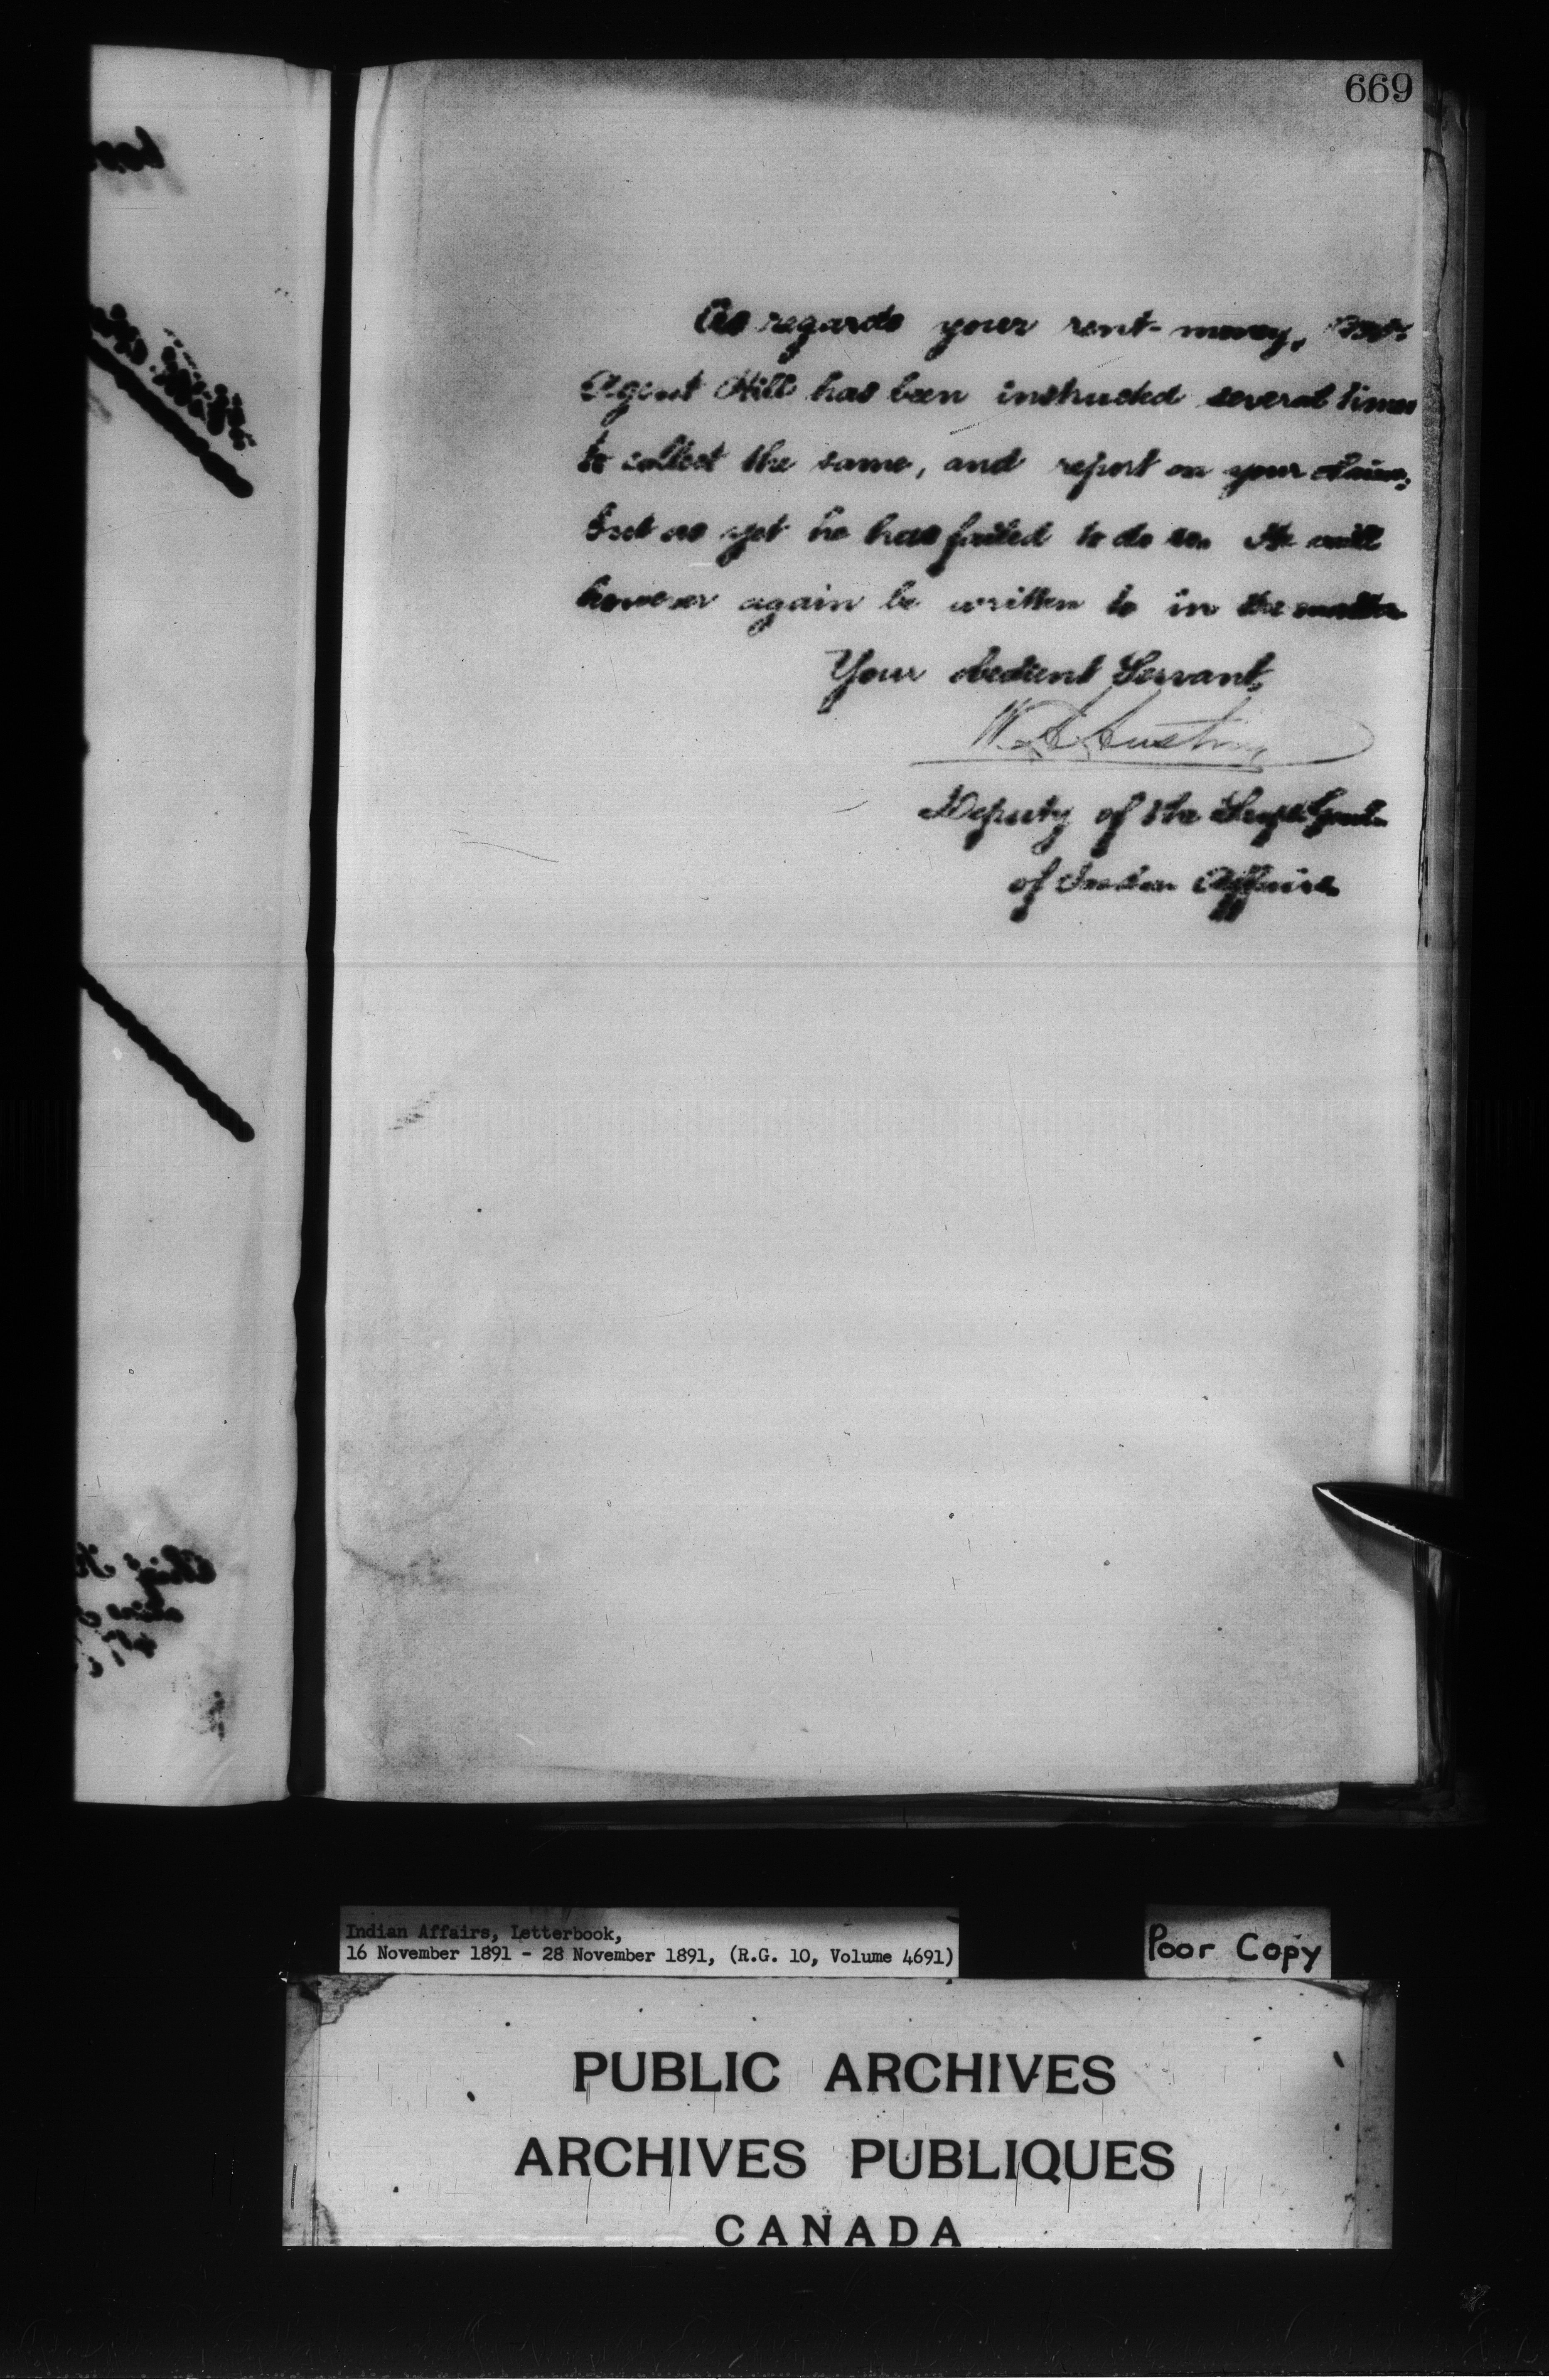 669
As regards your rent-money, Mr.
Agent Hill has been instructed several times
to collect the same, and report on your claim;
but as yet he has failed to do so. He will
however again be written to in the matter
Your obedient Servant,
Deputy of the Supt Genl.
of Indian Affairs
Indian Affairs, Letterbook,
16 November 1891 - 28 November 1891, (R.G. 10, Volume 4691)
Poor Copy
PUBLIC ARCHIVES
ARCHIVES PUBLIQUES
CANADA